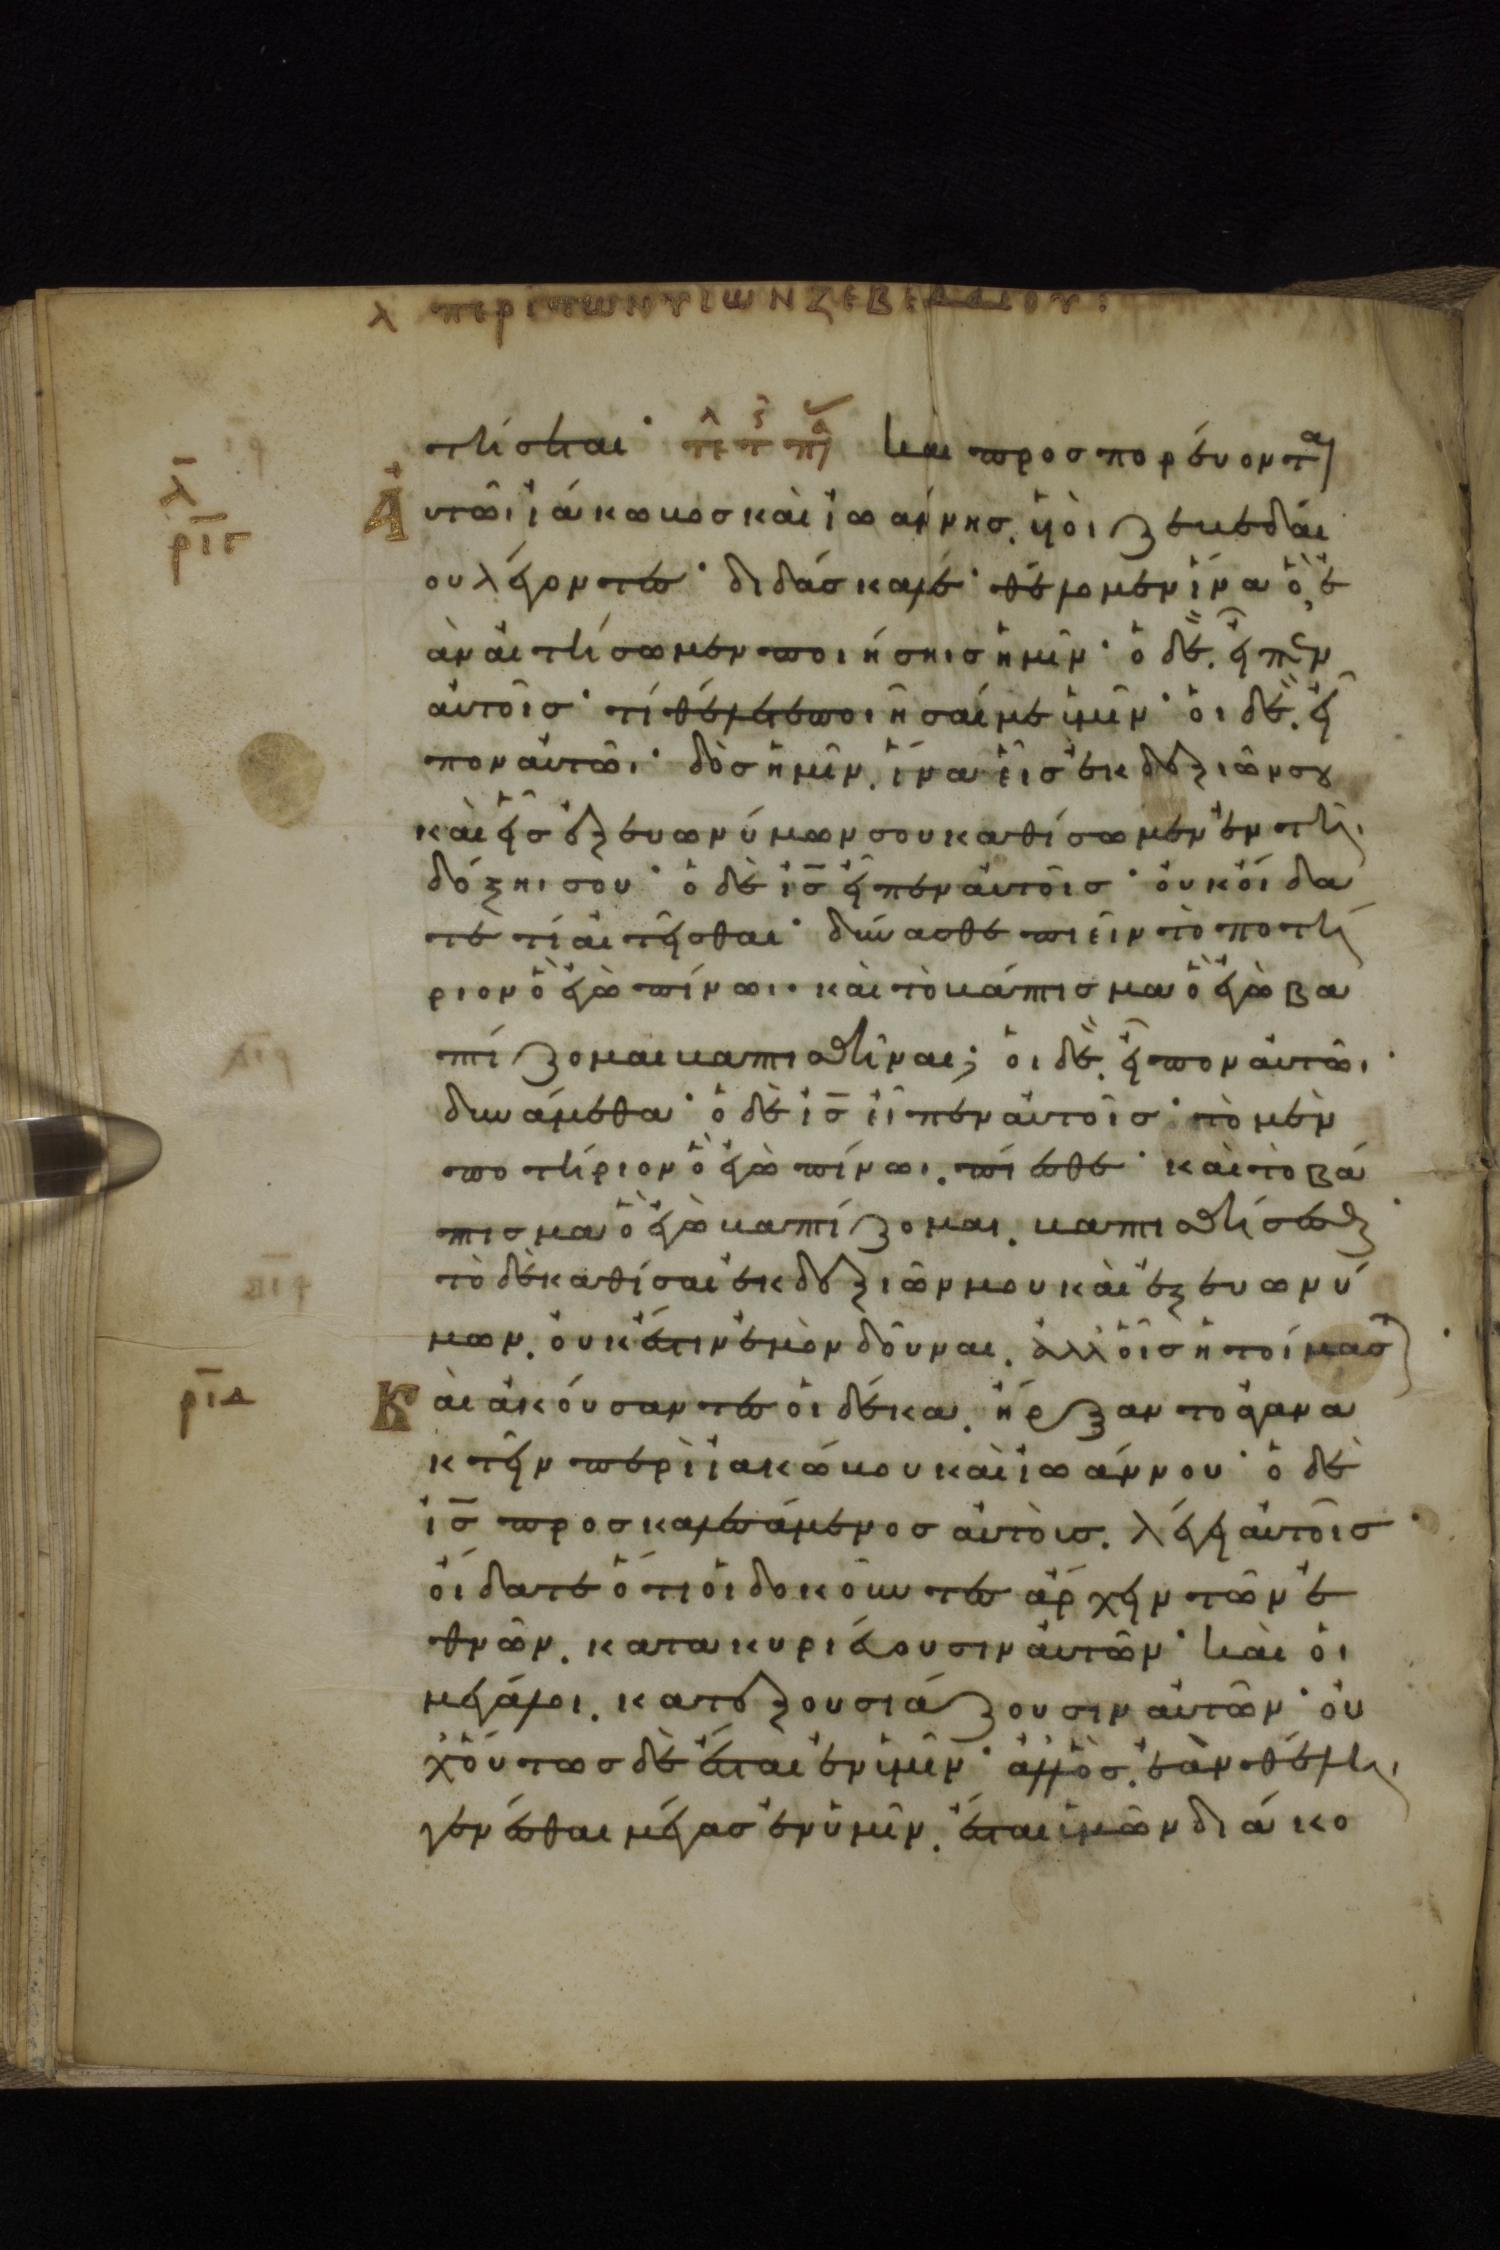 λ περὶ τῶν υἱῶν ζεβεδαίου :
στήσεται· τε τ πα και προσπορεύονται
λ
ριγ
Αὐτῶι ἰάκωβος καὶ ἰωάννης. ὑοι ζεβεδαί
ου λέγοντες· διδάσκαλε· θέλομεν ἵνα ὃ ἐ
ὰν αἰτήσωμεν ποιήσηις ἡμῖν· ὁ δὲ. εἶπεν
αὐτοῖς· τί θέλετε ποιῆσαί με ὑμῖν· οἱ δὲ. εἶ
πον αὐτῶι· δὸς ἡμῖν. ἵνα εἷς ἐκ δεξιῶν σου
καὶ εἷς ἐξ ευωνύμων σου καθίσωμεν ἐν τῆι
δόξηι σου· ὁ δὲ ις εἶπεν αὐτοῖς· οὐκ οἴδα
τε τί αἰτεῖσθαι· δύνασθε πιεῖν τὸ ποτή
ριον ὃ ἐγὼ πίνωι· καὶ τὸ βάπτισμα ὃ ἐγὼ βα
πτίζομαι βαπτισθῆναι; οἱ δὲ. εἶπον αὐτῶι·
δυνάμεθα· ὁ δὲ ις εἶπεν αὐτοῖς· τὸ μὲν
ποτήριον ὃ ἐγὼ πίνωι. πίεσθε· καὶ τὸ βά
πτισμα ὃ ἐγὼ βαπτίζομαι. βαπτισθήσεσθε·
τὸ δὲ καθίσαι ἐκ δεξιῶν μου καὶ ἐξ ευωνύ
μων. οὐκ ἔστιν ἐμὸν δοῦναι. ἀλλ οἷς ἡτοίμασται·
ριδ
Καὶ ἀκούσαντες οἱ δέκα. ἤρξαντο ἀγανα
κτεῖν περὶ ἰακώβου καὶ ἰωάννου· ὁ δὲ
ις προσκαλεσάμενος αὐτοὺς. λέγει αὐτοῖς·
οἴδατε ὅτι οἱ δοκοῦντες ἄρχειν τῶν ἐ
θνῶν. κατακυριεύουσιν αὐτῶν· καὶ οἱ
μεγάλοι. κατεξουσιάζουσιν αὐτῶν· οὐ
χ οὕτως δὲ ἔσται ἐν ὑμῖν· ἀλλ ὃς. ἐὰν θέληι
γενέσθαι μέγας ἐν ὑμῖν. ἔσται ὑμῶν διάκο